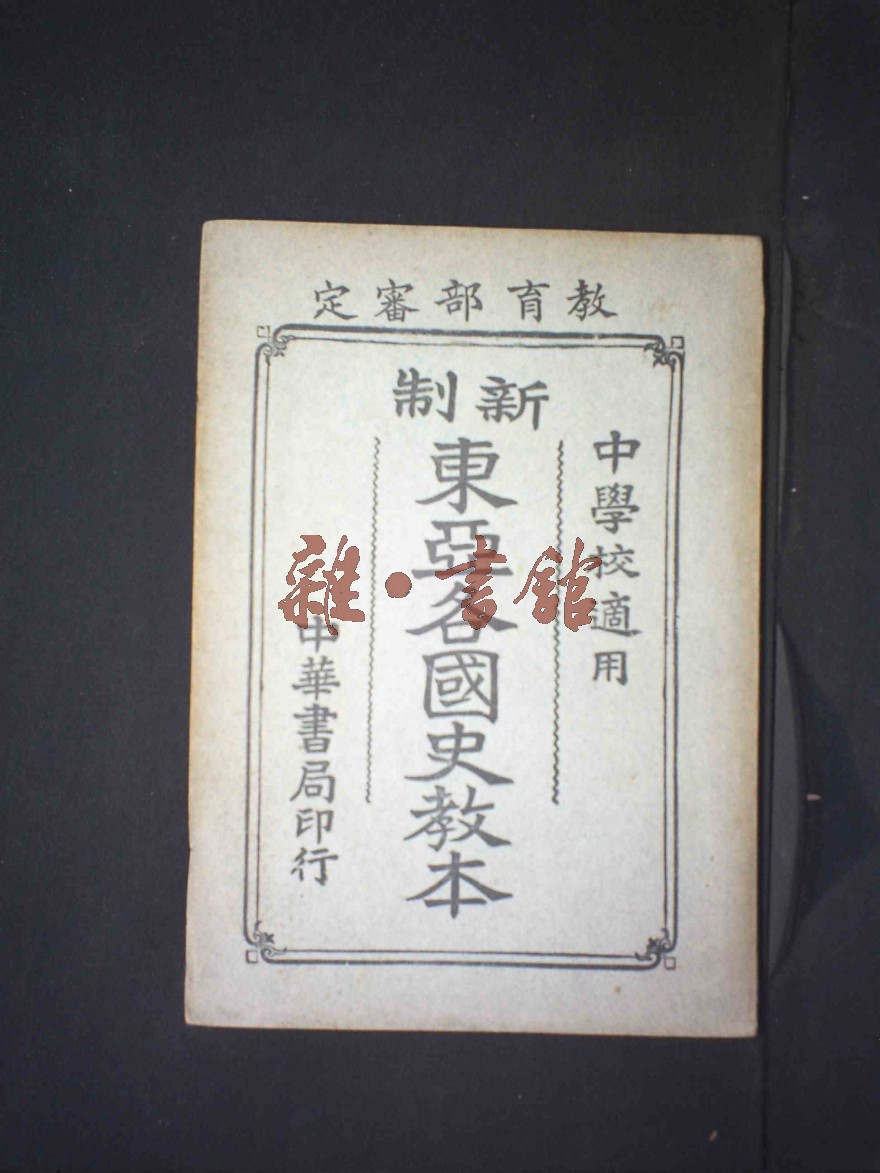 教育部審定
中學校適用
新制
東亞各國史教本
中華書局印行
雜·書館